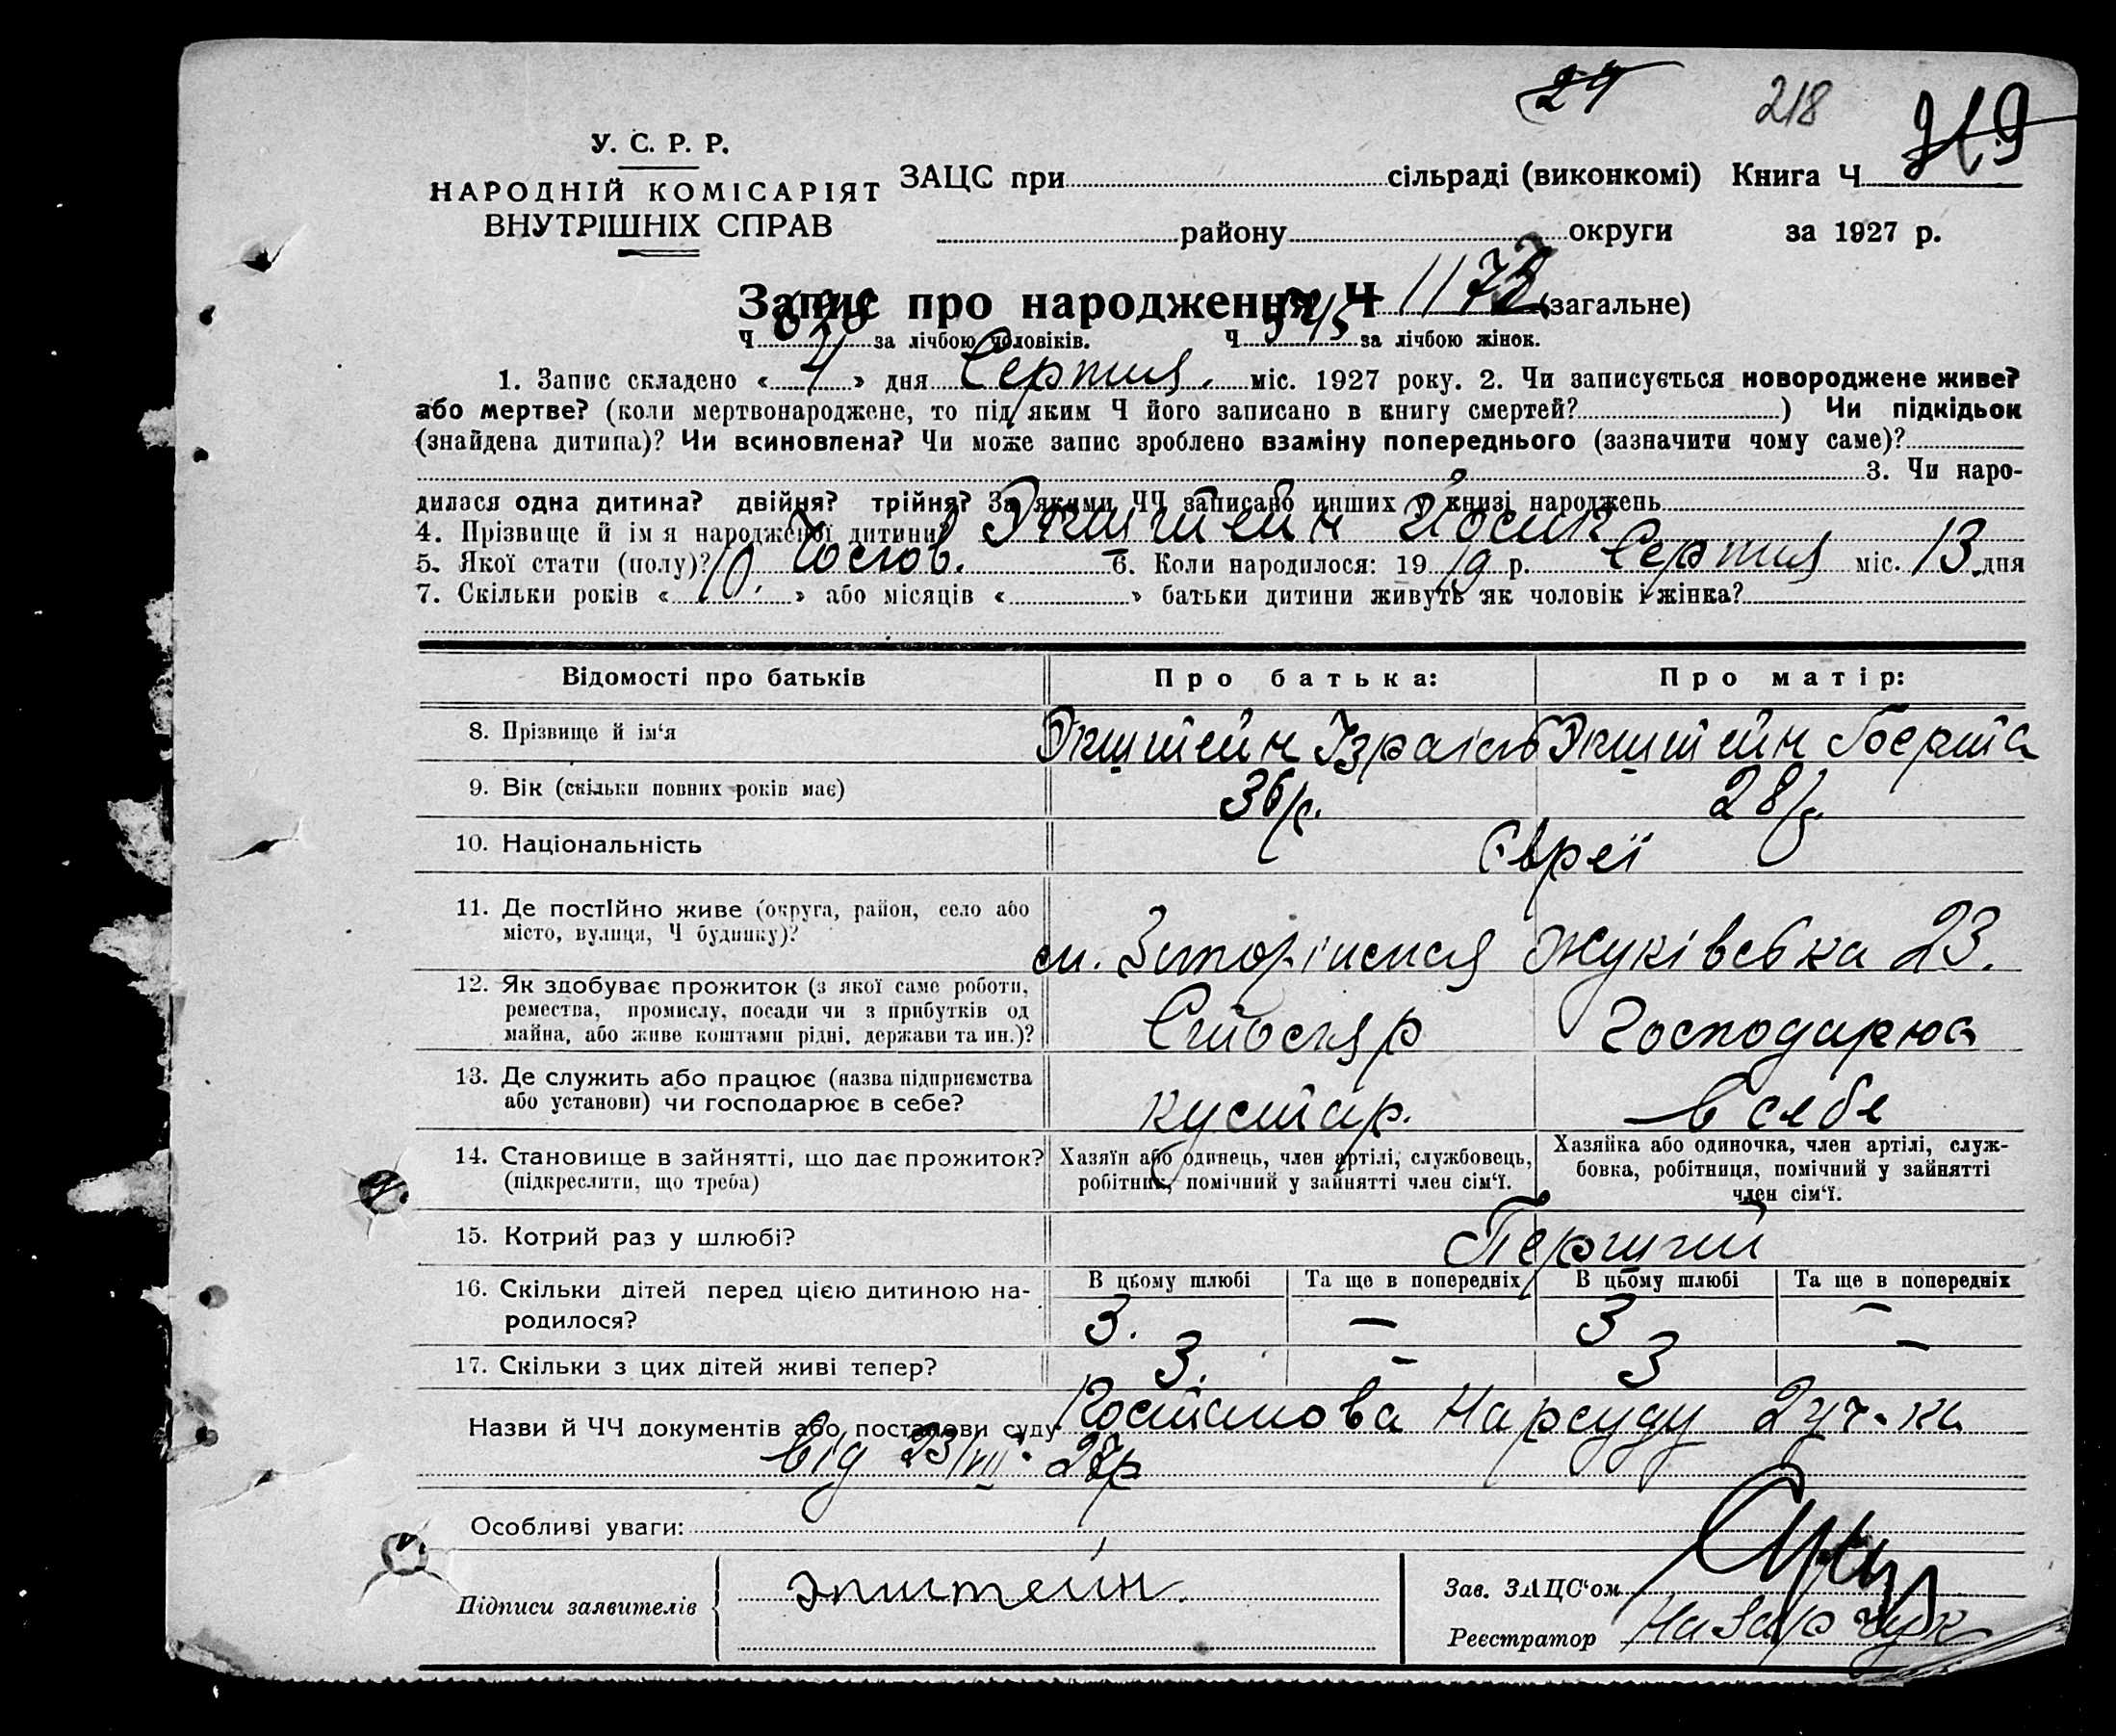 24 218 219
У. С. Р. Р.
НАРОДНІЙ КОМІСАРІЯТ
ВНУТРІШНІХ СПРАВ
ЗАЦС при сільраді (виконкомі) Книга Ч
району округи за 1927 р.
Запис про народження Ч 1173 (загальне)
Ч за лічбою чоловіків. Ч 545 за лічбою жінок.
1. Запис складено « 4 » дня Серпня. міс. 1927 року. 2. Чи записується новороджене живе?
або мертве? (коли мертвонароджене, то під яким Ч його записано в книгу смертей? ) Чи підкідьок
(знайдена дитина)? Чи всиновлена? Чи може запис зроблено взаміну попереднього (зазначити чому саме)?
3. Чи наро-
дилася одна дитина? двійня? трійня? За якими ЧЧ записано инших у книзі народжень
4. Прізвище й ім я народженої дитини? Экштейн Йосип
5. Якої стати (полу)? Чолов. 6. Коли народилося: 19 19 р. Серпня міс. 13 дня
7. Скільки років « 10. » або місяців « » батьки дитини живуть як чоловік і жінка?
Відомості про батьків Про батька: Про матір:
8. Прізвище й ім‘я Экштейн Ізраїль Экштейн Берта
9. Вік (скільки повних років має) 36 р. 28 р.
10. Національність Євреї
11. Де постійно живе (округа, район, село або
місто, вулиця, Ч будинку)? Жуківська 23.
12. Як здобуває прожиток (з якої саме роботи,
ремества, промислу, посади чи з прибутків од
майна, або живе коштами рідні, держави та ин.)? Стольяр Господарює
13. Де служить або працює (назва підприємства
або установи) чи господарює в себе? кустар. в себе
14. Становище в зайнятті, що дає прожиток?
(підкреслити, що треба)
Хазяїн або одинець, член артілі, службовець,
робітник, помічний у зайнятті член сім‘ї.
Хазяйка або одиночка, член артілі, служ-
бовка, робітниця, помічний у зайнятті
член сім‘ї.
15. Котрий раз у шлюбі? Перший
В цьому шлюбі Та ще в попередніх В цьому шлюбі Та ще в попередніх
16. Скільки дітей перед цією дитиною на-
родилося? 3. — 3 —
17. Скільки з цих дітей живі тепер? 3. — 3 —
Назви й ЧЧ документів або постанови суду Постанова Нарсуду 2 уч-ка
від 23/VII. 27р
Особливі уваги:
Підписи заявителів эпштейн.
Зав. ЗАЦС‘ом
Реєстратор Назарчук